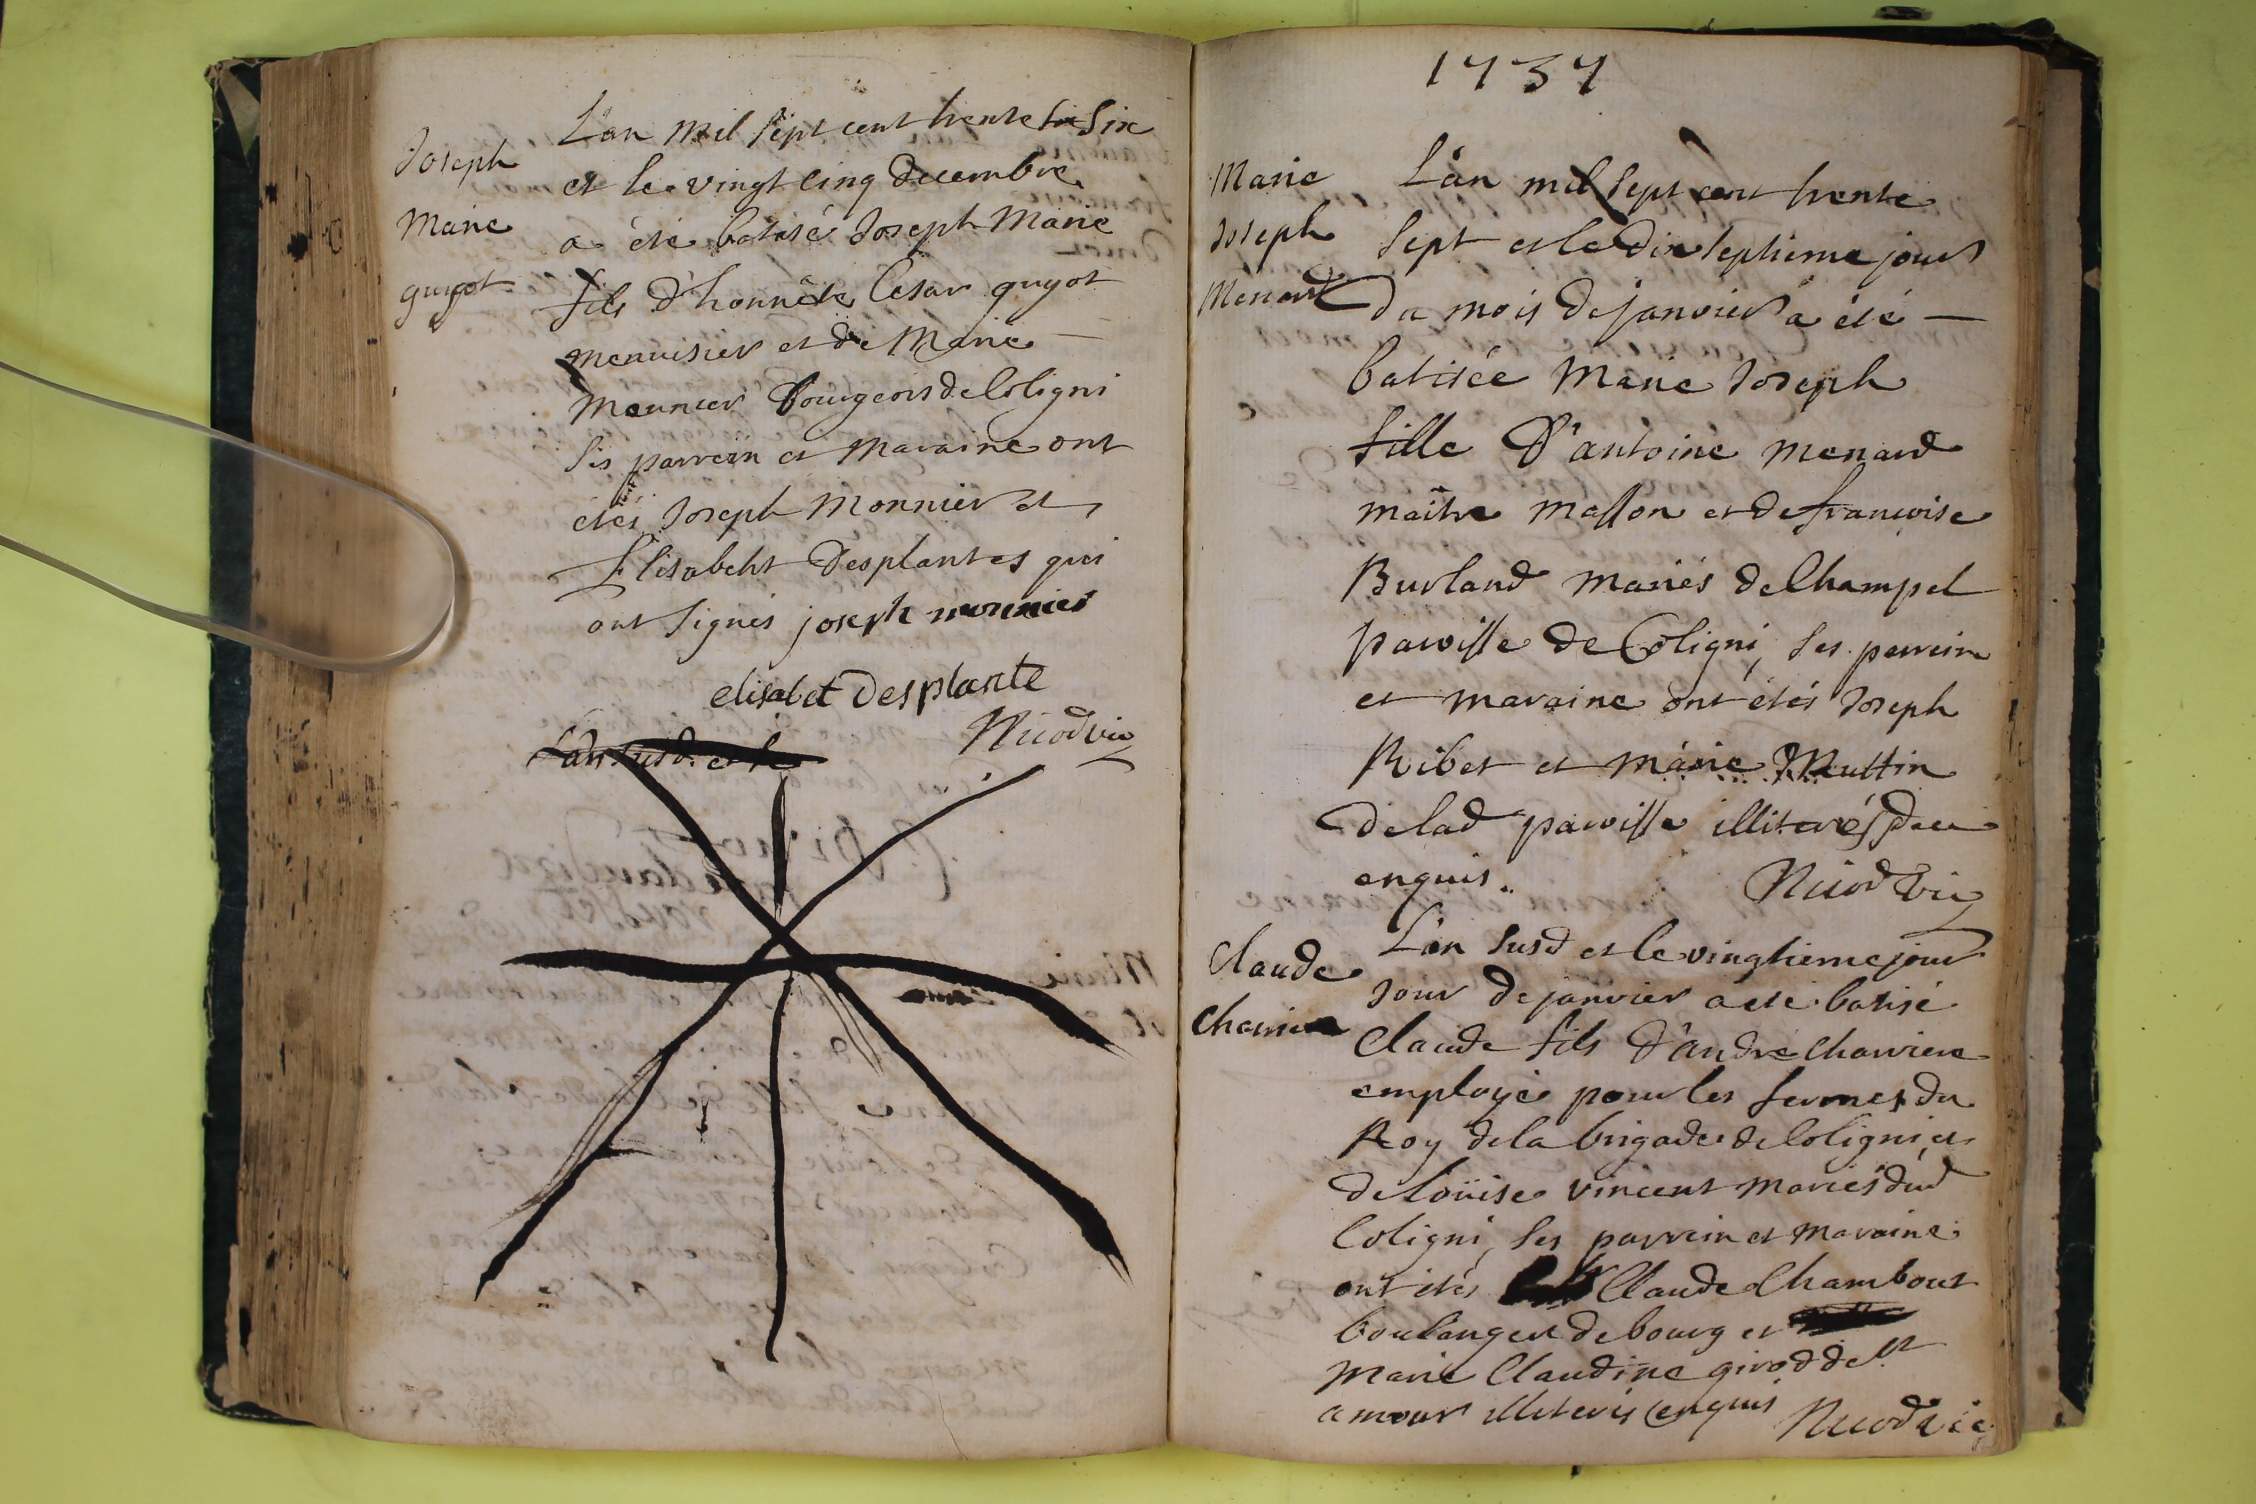 Joseph
Marie
guyot
L'an mil sept cent trente six
et le vingt cinq decembre
a été batisé Joseph Marie
fils d'honnête Cesar guyot
menuisier et de Marie
Meunier bourgeois de Coligni
ses parrein et maraine ont
étés Joseph Monnier et
Elisabeht Desplantes qui
ont signés joseph monnier
elisabet Desplante
Nicod vic
L'an susd. et le
1737
Marie
Joseph
Menard
L'an mil sept cent trente
sept et le dix septieme jour
du mois de janvier a été
batisée Marie Joseph
fille d'antoine menard
maître masson et de françoise
Burland mariés de Champel
paroisse de Coligni, ses parrein
et maraine ont étés Joseph
Ribet et marie Muttin
de lad paroisse illiterés de ce
enquis.
Nicod Vic
Claude
Charriere
L'an susd et le vingtieme jour
jour de janvier a eté batisé
Claude fils d'andré Charriere
employé pour les fermes du
Roy de la brigade de Coligni, et
de Loüise vincent mariés dud
Coligni, ses parrein et maraine
ont étés Claude Chambout
boulanger de bourg et
Marie Claudine girod de St
amour illiterés enquis
Nicod vic